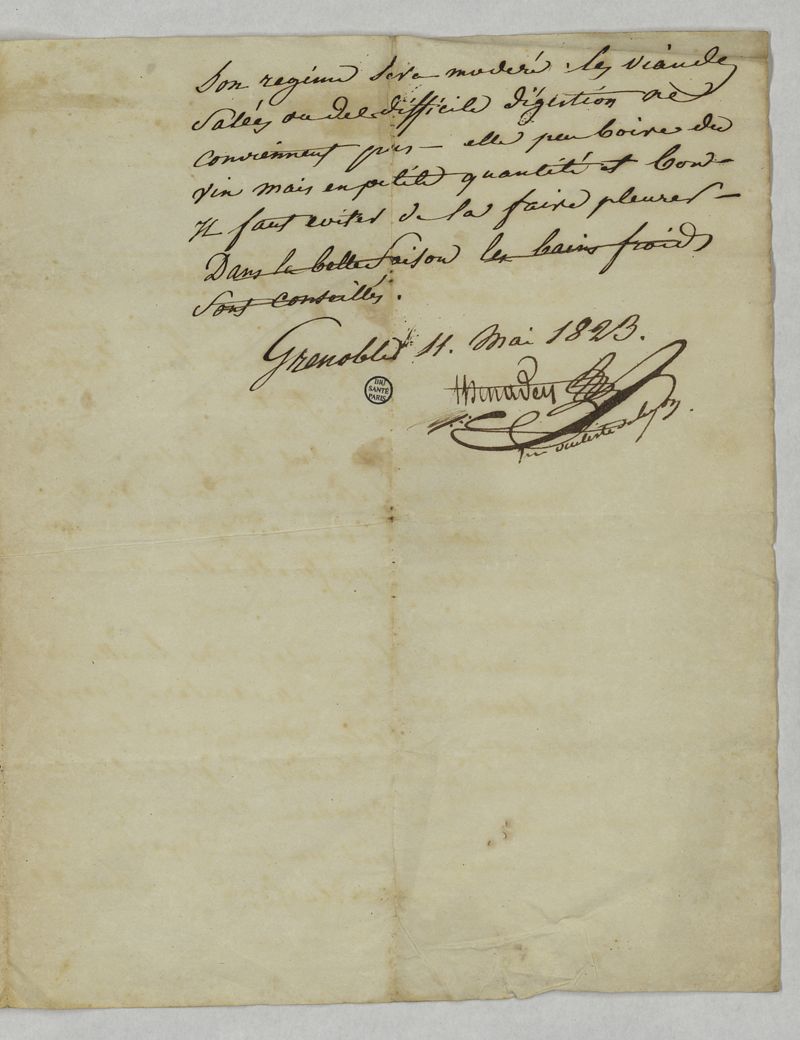 Son regime sera moderé. les viandes
Saleés ou de difficile digestion ne
conviennent pas — elle peu boire du
vin mais en petite quantité et bon —
Il faut eviter de la faire pleurer —
Dans la belle Saison les bains froids
Sont conseillés.
Grenoble 11. Mai 1823.
BIU
SANTÉ
PARIS